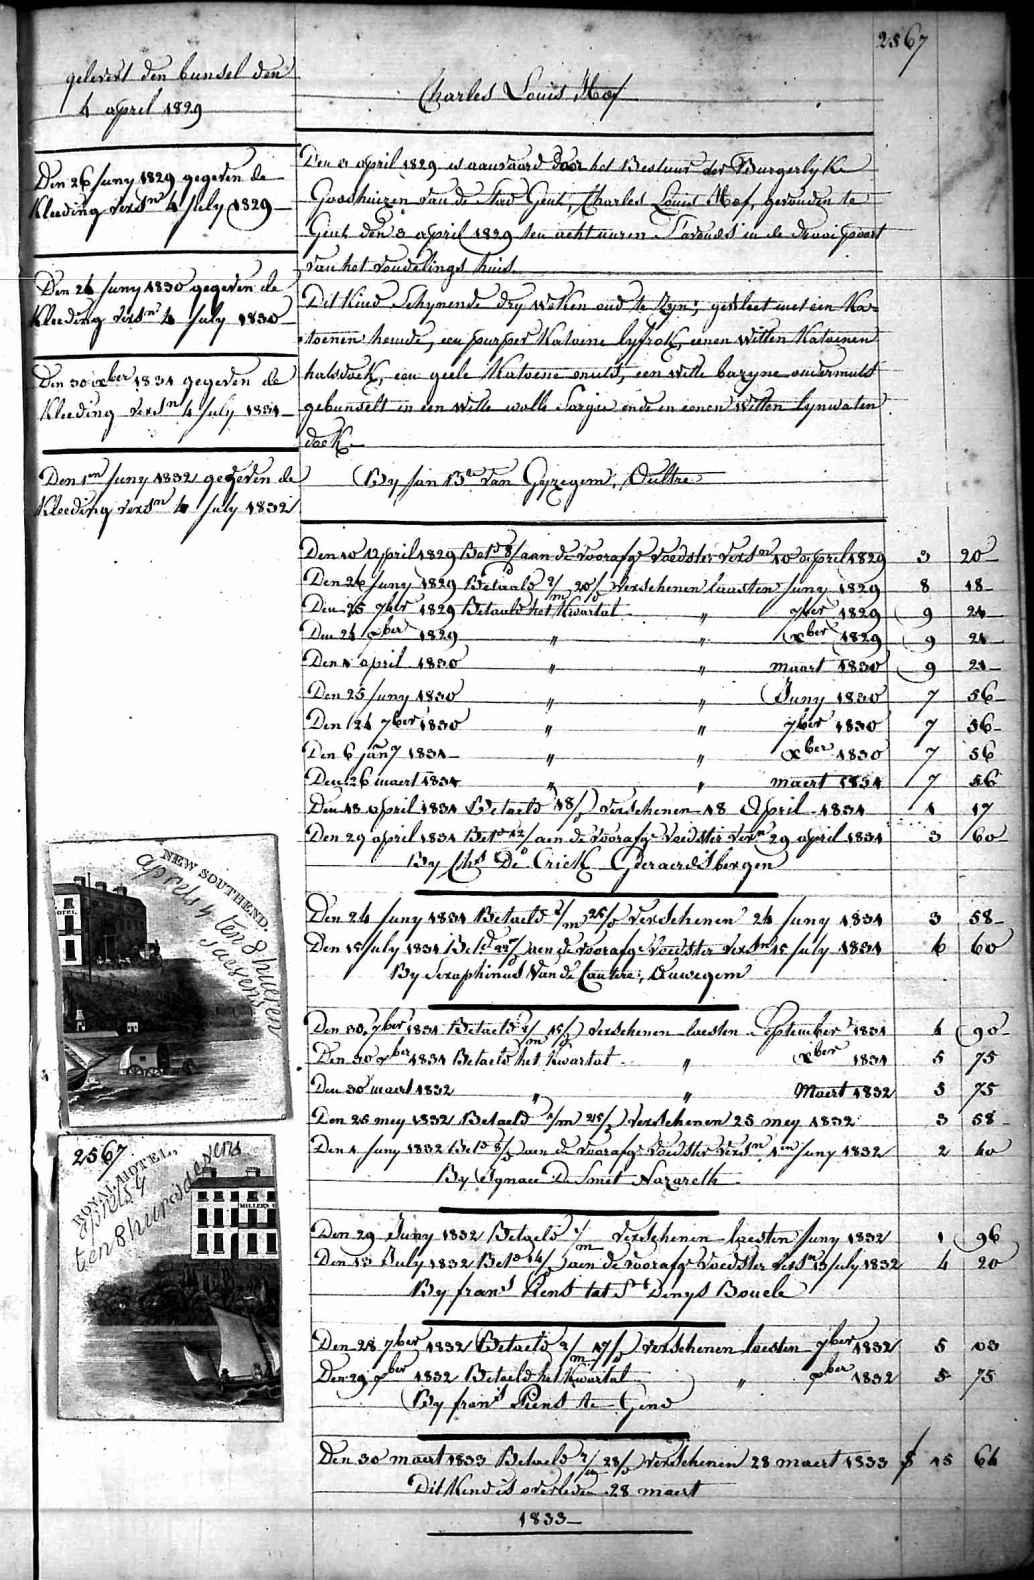 2567
gelevert den bunsel den
4 april 1829
Charles Louis Hof
Den 26 Juny 1829 gegeven de
Kleeding versn 4 July 1829
Den 26 Juny 1830 gegeven de
Kleeding versn 4 July 1830
Den 30 xber 1831 gegeven de
Kleeding versn 4 July 1831
Den 1en Juny 1832 gegeven de
Kleeding versn 4 July 1832
Den 3 april 1829 is aanvaard door het Bestuur der Burgerlyke
Godshuizen van de Stad Gent, Charles Louis Hof, gevonden te
Gent den 3 april 1829 ten acht uuren S'avonds in de draaipoort
van het vondelings huis.
Dit Kind Schynende dry weken oud te zyn; gekleet met een Ka-
toenen hemde, een purper Katoene lyfrok, eenen witten Katoenen
halsdoek, een geele Katoene muts, een witte bazyne ondermuts
gebunselt in een witte wolle Sargie ende in eenen witten lynwaten
doek.
By Jan Bte van Gyzegem, Oultre
Den 10 April 1829 Betd 8/ aan de voorafge voedster versn 10 april 1829 3 20
Den 26 Juny 1829 Betaald 2/m 20/d verschenen laasten Juny 1829 8 18
Den 25 7ber 1829 Betaald het Kwartal " 7ber 1829 9 24
Den 24 xber 1829 " " xber 1829 9 24
Den 1 april 1830 " " maart 1830 9 24
Den 25 Juny 1830 " " Juny 1830 7 56
Den 24 7ber 1830 " " 7ber 1830 7 56
Den 6 Jany 1831 " " xber 1830 7 56
Den 26 maert 1831 " " maert 1831 7 56
Den 18 april 1831 Betaeld 18/d verschenen 18 April 1831 1 17
Den 29 april 1831 Betd 12/ aen de voorafge voedster versn 29 april 1831 3 60
By Chs De Crick Gderaerdsbergen
Den 24 Juny 1831 Betaeld 1/m 25/d verschenen 24 Juny 1831 3 58
Den 15 July 1831 Betd 22/d aen de voorafge voedster versn 15 July 1831 6 60
By Seraphinus Van de Cautere, Ouwegem
Den 30 7ber 1831 Betaeld 2/m 15/d verschenen laesten September 1831 4 90
Den 30 xber 1831 Betaeld het Kwartal " xber 1831 5 75
Den 30 maert 1832 " " Maert 1832 5 75
Den 25 mey 1832 Betaeld 1/m 25/d verschenen 25 mey 1832 3 58
Den 1 Juny 1832 Betd 8/d aen de voorafge voedster versn 1en Juny 1832 2 40
By Ignace De Smet Nazareth
Den 29 Juny 1832 Betaeld 1/m verschenen laesten Juny 1832 1 96
Den 13 July 1832 Betd 14/d aen de voorafge voedster versn 13 July 1832 4 20
By frans Piens tot St Denys Boucle
Den 28 7ber 1832 Betaeld 2/m 17/d verschenen laesten 7ber 1832 5 03
Den 29 xber 1832 Betaeld het Kwartal " xber 1832 5 75
By frans Piens te Gend
Den 30 maert 1833 Betaeld 2/m 28/d verschenen 28 maert 1833 15 64
Dit Kind is overleden 28 maert
1833
NEW SOUTHEND.
aprels 4 ten 8 hueren
saevens
HOTEL
2567
ROYAL HOTEL,
aprels 4
ten 8 hurs saevens
MILLERS